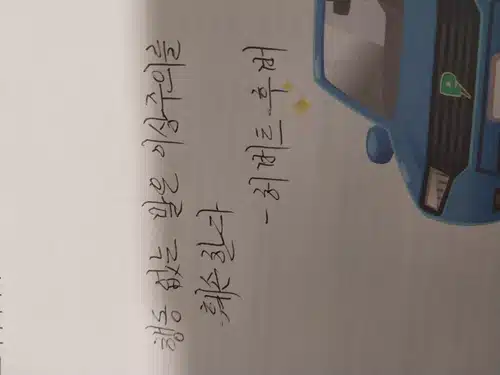 행동 없는 말은 이상주의를
훼손한다
- 허버트 후버